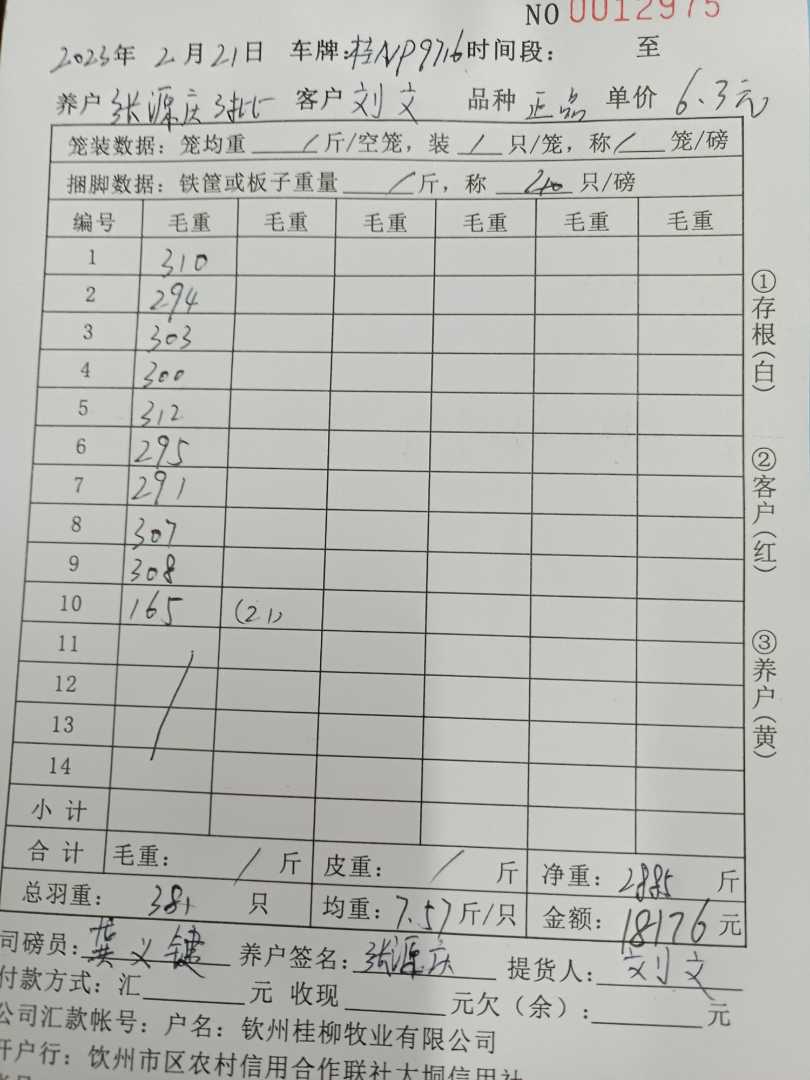 NO 0012975
2023年 2月21日 车牌:桂NP9716 时间段: 至
养户 张源庆 3批 客户 刘文 品种 正品 单价 6.3元
笼装数据: 笼均重 / 斤/空笼, 装 / 只/笼, 称 / 笼/磅
捆脚数据: 铁筐或板子重量 / 斤, 称 40 只/磅
编号 毛重 毛重 毛重 毛重 毛重 毛重
1 310
2 294
3 303
4 300
5 312
6 295
7 291
8 307
9 308
10 165 (21)
11
12
13
14
小 计
合 计 毛重: / 斤 皮重: / 斤 净重: 2885 斤
总羽重: 381 只 均重: 7.57 斤/只 金额: 18176 元
司磅员: 龚义键 养户签名: 张源庆 提货人: 刘文
付款方式: 汇 元 收现 元欠(余): 元
公司汇款帐号: 户名: 钦州桂柳牧业有限公司
开户行: 钦州市区农村信用合作联社大垌信用社
①存根(白)
②客户(红)
③养户(黄)